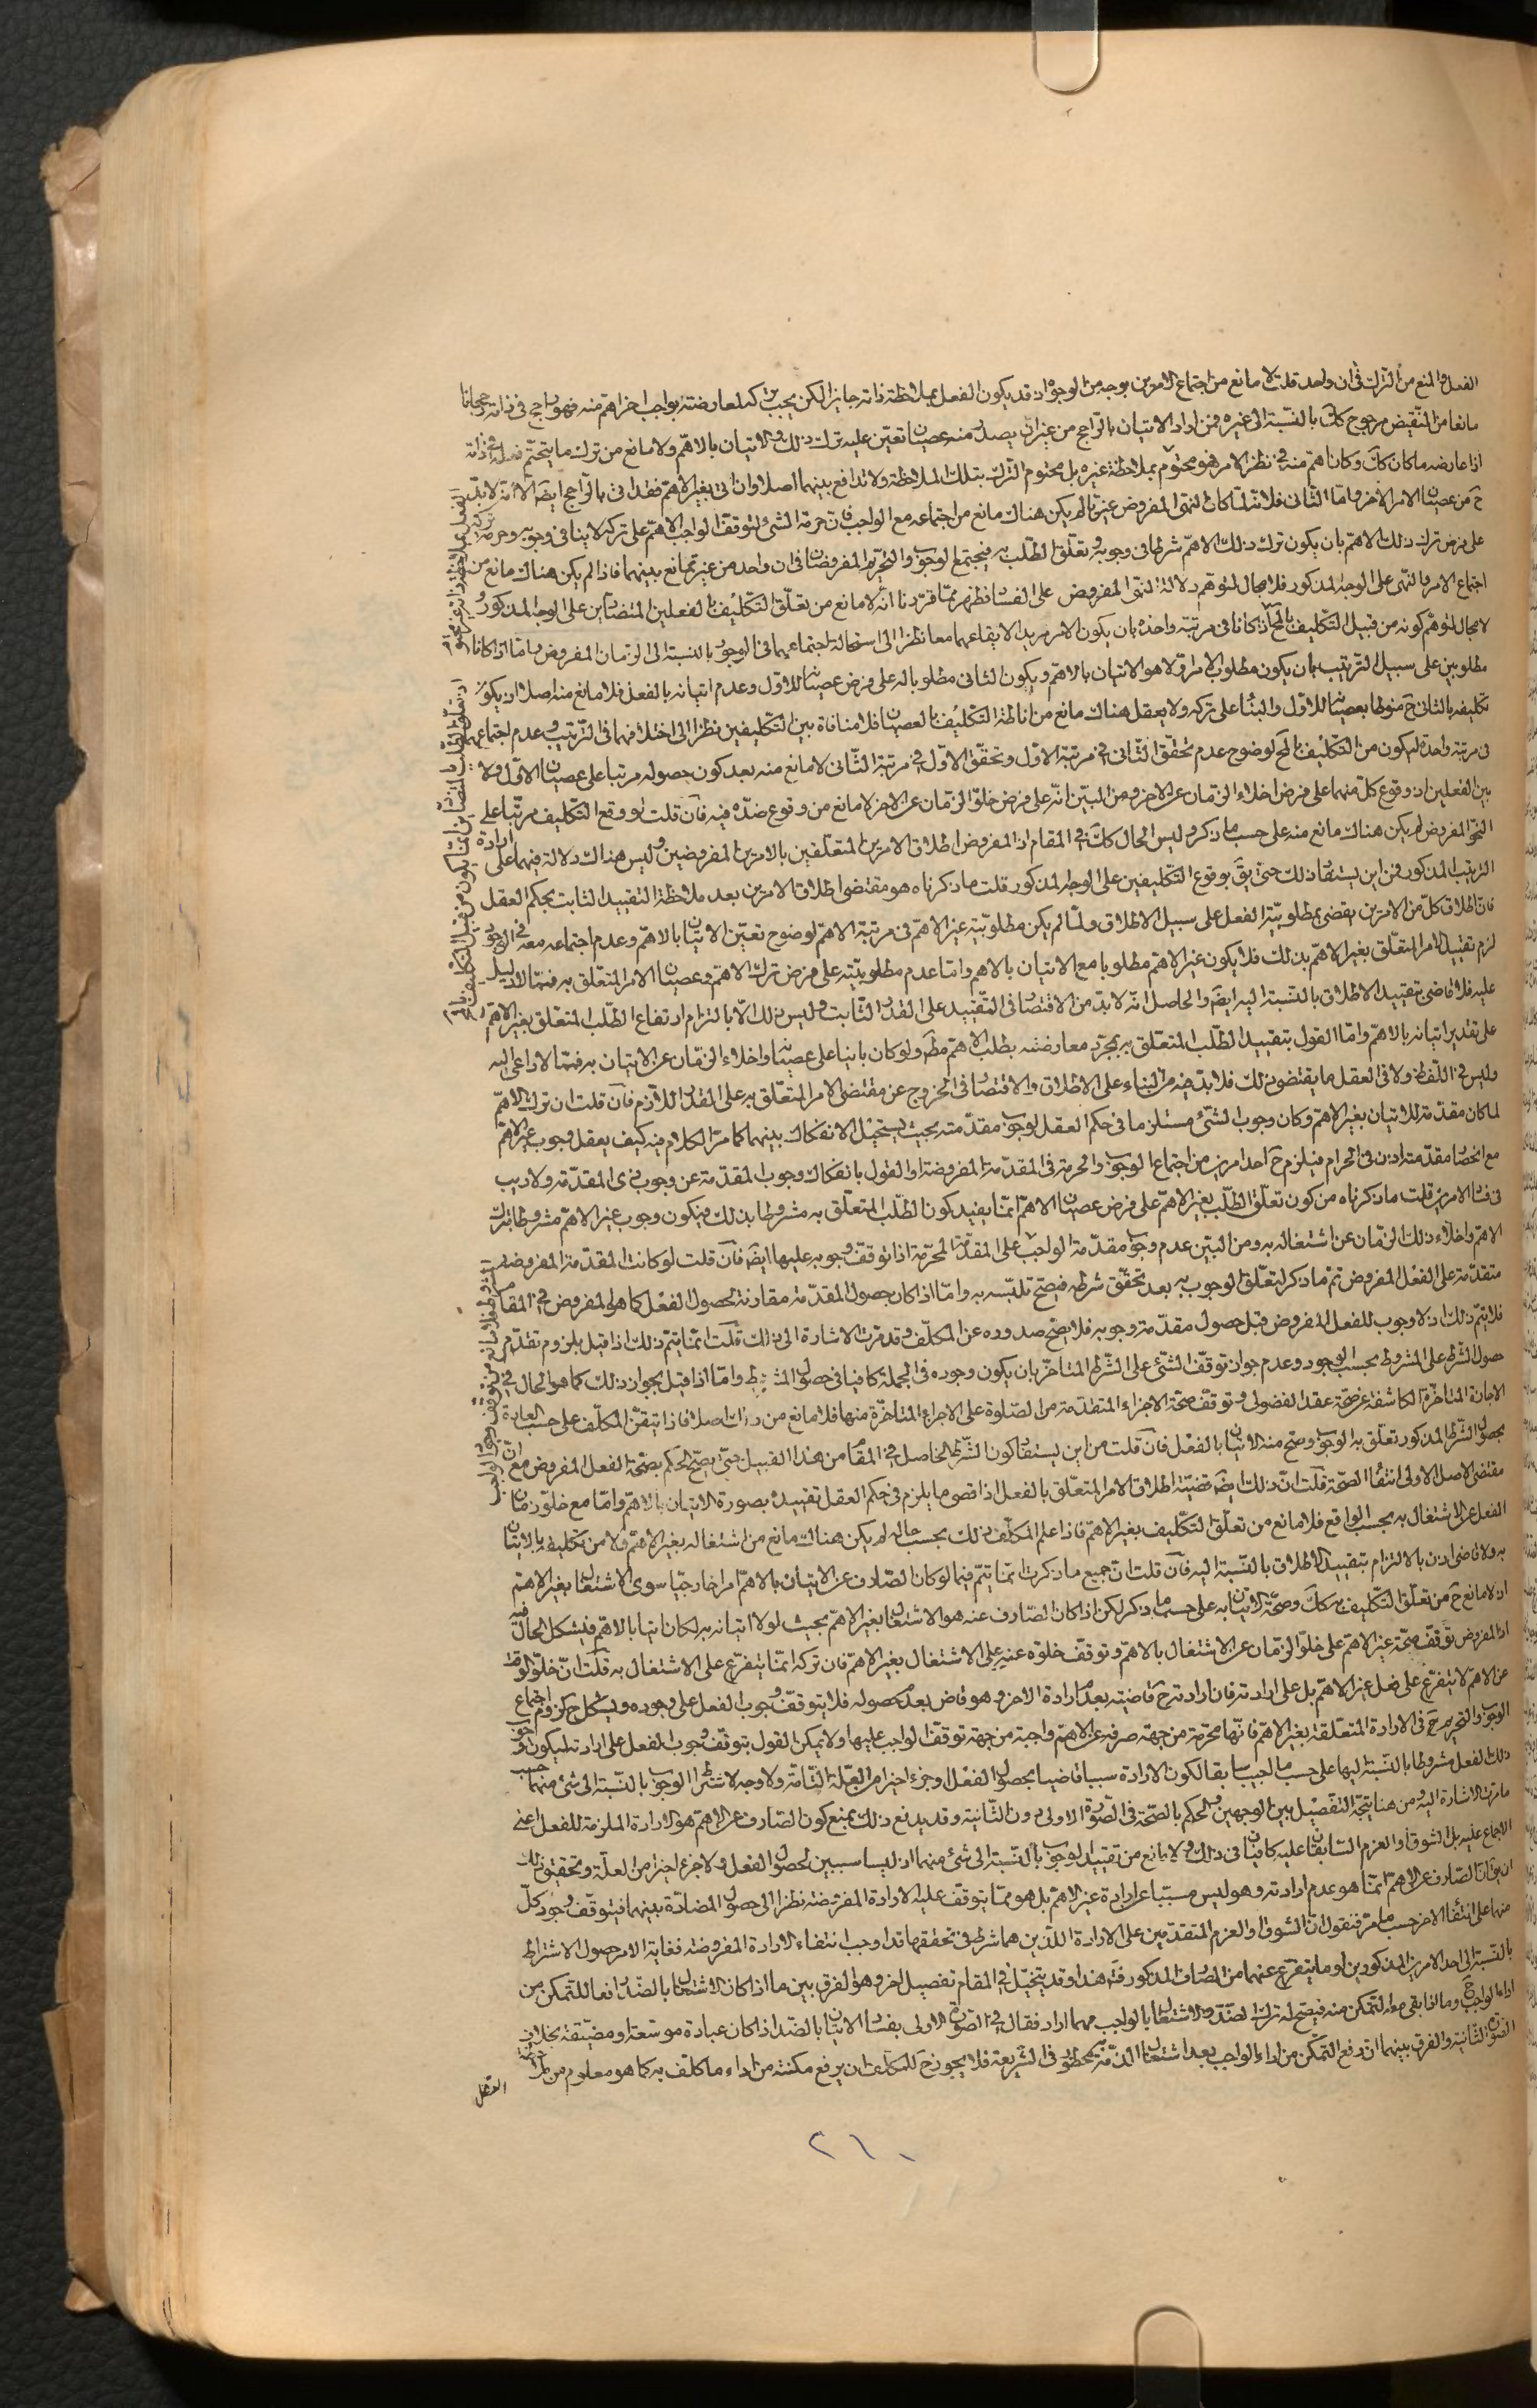 الفعل والمنع من الترك فى ان واحد قلت لا مانع من اجتماع الامرين بوجه من الوجوه اذ قد يكون الفعل بملاحظة ذاته جايزا لكن يجب تركه لمعارضته لواجب اخر اهم منه فهو راجح فى ذاته رجحانا
مانعا من النقيض مرجوح كك بالنسبة الى غيره فمن اراد الاتيان بالراجح من غير ان يصدر منه عصيان تعين عليه ترك ذلك والاتيان بالاهم ولا مانع من ترك ما يتحتم فعله فى ذاته
اذا عارضه ما كان كك وكان اهم منه فى نظر الامر فهو محتوم بملاحظة غيره بل محتوم الترك بتلك الملاحظة ولا تدافع بينهما اصلا وان اتى بغير الاهم فقد اتى بالراجح ايضا الا انه لا بد
ح من عصيان الامر الاخر واما الثانى فلانه لما كان النهى المفروض غيريا لم يكن هناك مانع من اجتماعه مع الواجب فان حرمة الشئ لتوقف الواجب الاهم على تركه لا ينافى وجوبه وحرمة تركه
على فرض ترك ذلك الاهم بان يكون ترك ذلك الاهم شرطا فى وجوبه وتعلق الطلب به فيجتمع الوجوب والتحريم المفروضان فى ان واحد من غير تمانع بينهما فاذا لم يكن هناك مانع من
اجتماع الامر والنهى على الوجه المذكور فلا مجال لتوهم دلالة النهى المفروض على الفساد فظهر مما قررنا انه لا مانع من تعلق التكليف بالفعلين المتضادين على الوجه المذكور و
لا مجال لتوهم كونه من قبيل التكليف بالمحال اذا كانا فى مرتبة واحدة بان يكون الامر مريدا لايقاعهما معا نظرا الى استحالة اجتماعهما فى الوجود بالنسبة الى الزمان المفروض واما اذا كانا
مطلوبين على سبيل الترتيب بان يكون مطلوب الامر اولا هو الاتيان بالاهم ويكون الثانى مطلوبا له على فرض عصيانه للاول وعدم اتيانه بالفعل فلا مانع منه اصلا اذ يكون
تكليفه بالثانى ح منوطا بعصيانه للاول والبناء على تركه ولا يعقل هناك مانع من اناطة التكليف بالعصيان فلا منافاة بين التكليفين نظرا الى اختلافهما فى الترتيب وعدم اجتماعهما
فى مرتبة واحدة ليكون من التكليف بالمح لوضوح عدم تحقق الثانى فى مرتبة الاول وتحقق الاول فى مرتبة الثانى لا مانع منه بعد كون حصوله مرتبا على عصيان الاول ولا
بين الفعلين اذ وقوع كل منهما على فرض اخلاء الزمان عن الاخر ومن البين انه على فرض خلو الزمان عن الاخر لا مانع من وقوع ضده فيه فان قلت لو وقع التكليف مرتبا على
النحو المفروض لم يكن هناك مانع منه على حسب ما ذكر وليس الحال كك فى المقام اذ المفروض اطلاق الامرين المتعلقين بالامرين المفروضين وليس هناك دلالة فيهما على ارادة
الترتيب المذكور فمن اين يستفاد ذلك حتى يق بوقوع التكليفين على الوجه المذكور قلت ما ذكرناه هو مقتضى اطلاق الامرين بعد ملاحظة التقييد الثابت بحكم العقل
فان اطلاق كل من الامرين يقضى بمطلوبية الفعل على سبيل الاطلاق ولما لم يكن مطلوبية غير الاهم فى مرتبة الاهم لوضوح تعين الاتيان بالاهم وعدم اجتماعه معه فى الوجود
لزم تقييد الامر المتعلق بغير الاهم بذلك فلا يكون غير الاهم مطلوبا مع الاتيان بالاهم واما عدم مطلوبيته على فرض ترك الاهم وعصيان الامر المتعلق به فمما لا دليل
عليه فلا قاضى بتقييد الاطلاق بالنسبة اليه ايضا والحاصل انه لا بد من الاقتصار فى التقييد على القدر الثابت وليس ذلك الا بالتزام ارتفاع الطلب المتعلق بغير الاهم
على تقدير اتيانه بالاهم واما القول بتقييد الطلب المتعلق به بمجرد معارضته بطلب الاهم مطم ولو كان بانيا على عصيانه واخلاء الزمان عن الاتيان به فمما لا داعى اليه
وليس فى اللفظ ولا فى العقل ما يقتضى ذلك فلا بد فيه من البناء على الاطلاق والاقتصار فى الخروج عن مقتضى الامر المتعلق به على القدر اللازم فان قلت ان ترك الاهم
لما كان مقدمة للاتيان بغير الاهم وكان وجوب الشئ مستلزما فى حكم العقل لوجوب مقدمته بحيث يستحيل الانفكاك بينهما كما مر الكلام فيه كيف يعقل وجوب غير الاهم
مع انحصار مقدمته اذن فى الحرام فيلزم ح احد امرين من اجتماع الوجوب والحرمة فى المقدمة المفروضة او القول بانفكاك وجوب المقدمة عن وجوب ذى المقدمة ولا ريب
فى فساد الامرين قلت ما ذكرناه من كون تعلق الطلب بغير الاهم على فرض عصيان الاهم انما يفيد كون الطلب المتعلق به مشروطا بذلك فيكون وجوب غير الاهم مشروطا بترك
الاهم واخلاء ذلك الزمان عن اشتغاله به ومن البين عدم وجوب مقدمة الواجب على المقدمة المحرمة اذا توقف وجوبه عليها ايضا فان قلت لو كانت المقدمة المفروضة
متقدمة على الفعل المفروض تم ما ذكر لتعلق الوجوب به بعد تحقق شرطه فيصح تلبسه به واما اذا كان حصول المقدمة مقارنة لحصول الفعل كما هو المفروض فى المقام
فلا يتم ذلك اذ لا وجوب للفعل المفروض قبل حصول مقدمة وجوبه فلا يصح صدوره عن المكلف وقد مرت الاشارة الى ذلك قلت انما يتم ذلك اذا قيل بلزوم تقدم
حصول الشرط على المشروط بحسب الوجود وعدم جواز توقف الشئ على الشرط المتاخر بان يكون وجوده فى الجملة كافيا فى حصول المشروط واما اذا قيل بجواز ذلك كما هو الحال فى
الاجازة المتاخرة الكاشفة عن صحة عقد الفضولى وتوقف صحة الاجزاء المتقدمة من الصلوة على الاجزاء المتاخرة منها فلا مانع من ذلك اصلا فاذا تيقن المكلف على حسب العادة
بحصول الشرط المذكور تعلق به الوجوب وصح منه الاتيان بالفعل فان قلت من اين يستفاد كون الشرط الحاصل فى المقام من هذا القبيل حتى يصح الحكم بصحة الفعل المفروض مع ان
مقتضى الاصل الاولى انتفاء الصحة قلت ان ذلك ايضا قضية اطلاق الامر المتعلق بالفعل اذ اقصى ما يلزم فى حكم العقل تقييده بصورة الاتيان بالاهم واما مع خلو زمان
الفعل عن الاشتغال به بحسب الواقع فلا مانع من تعلق التكليف بغير الاهم فاذا علم المكلف ذلك بحسب حاله لم يكن هناك مانع من اشتغاله بغير الاهم ولا من تكليفه بالاتيان
به ولا قاضى اذن بالالتزام بتقييد الاطلاق بالنسبة اليه فان قلت ان جميع ما ذكرت انما يتم فيما لو كان الصارف عن الاتيان بالاهم امرا خارجيا سوى الاشتغال بغير الاهم
اذ لا مانع ح من تعلق التكليف به كك وصحة الاتيان به على حسب ما ذكر لكن اذا كان الصارف عنه هو الاشتغال بغير الاهم بحيث لولا اتيانه به لكان اتيا بالاهم فيشكل الحال فيه
اذ المفروض توقف صحة غير الاهم على خلو الزمان عن الاشتغال بالاهم وتوقف خلوه عنه على الاشتغال بغير الاهم فان تركه انما يتفرع على الاشتغال به قلت ان خلو الوقت
عن الاهم لا يتفرع على فعل غير الاهم بل على ارادته فان ارادته ح قاضيته بعدم ارادة الاخر وهو قاض بعدم حصوله فلا يتوقف وجوب الفعل على وجوده ويشكل ح بلزوم اجتماع
الوجوب والتحريم ح فى الارادة المتعلقة بغير الاهم فانها محرمة من جهة صرفه عن الاهم واجبة من جهة توقف الواجب عليها ولا يمكن القول بتوقف وجوب الفعل على ارادته ليكون وجوب
ذلك الفعل مشروطا بالنسبة اليها على حسب ما اجيب سابقا لكون الارادة سببا قاضيا بحصول الفعل او جزء اخيرا من العلة التامة ولا وجه لاشتراط الوجوب بالنسبة الى شئ منهما حسب
ما مرت الاشارة اليه ومن هنا يتجه التفصيل بين الوجهين والحكم بالصحة فى الصورة الاولى دون الثانية وقد يدفع ذلك بمنع كون الصارف عن الاهم هو الارادة الملزمة للفعل اعنى
الاجماع عليه بل الشوق او العزم السابقان عليه كافيان فى ذلك ولا مانع من تقييد الوجوب بالنسبة الى شئ منهما اذ ليسا سببين لحصول الفعل ولا جزء اخيرا من العلة وتحقيق ذلك
ان يق ان الصارف عن الاهم انما هو عدم ارادته وهو ليس مسببا عن ارادة غير الاهم بل هو مما يتوقف عليه الارادة المفروضة نظرا الى حصول المضادة بينهما فيتوقف وجود كل
منهما على انتفاء الاخر حسب ما مر فنقول ان الشوق او العزم المتقدمين على الارادة اللذين هما شرط فى تحققها قد اوجب انتفاء الارادة المفروضة فغاية الامر حصول الاشتراط
بالنسبة الى احد الامرين المذكورين او ما يتفرع عنهما من الصارف المذكور فت هذا وقد يتخيل فى المقام تفصيل اخر وهو الفرق بين ما اذا كان الاشتغال بالضد رافعا للتمكن من
اداء الواجب ح وما اذا بقى معه التمكن منه فيصح له ترك الضد والاشتغال بالواجب مهما اراد فقال فى الصورة الاولى بفساد الاتيان بالضد اذا كان عبادة موسعة او مضيقة بخلاف
الصورة الثانية والفرق بينهما ان رفع التمكن من اداء الواجب بعد اشتغال الذمة به محظور فى الشريعة فلا يجوز ح للمكلف ان يرفع مكنته من اداء ما كلف به كما هو معلوم من
العقل
٢١٠